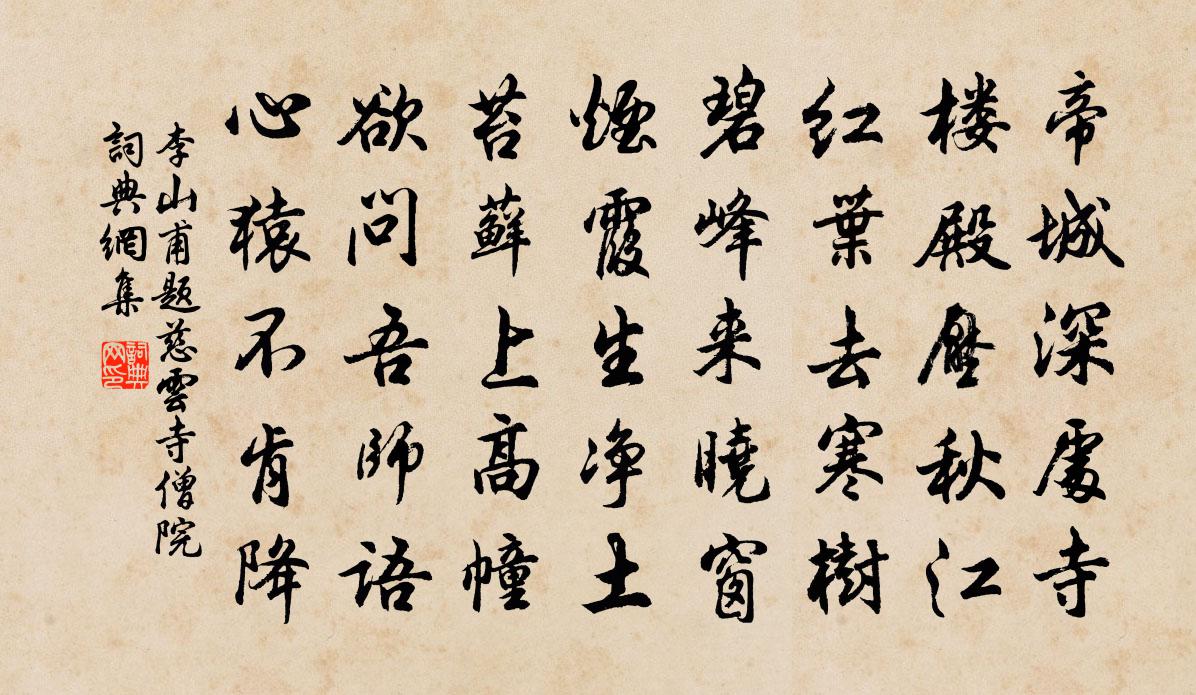 帝城深處寺
楼殿壓秋江
红葉去寒樹
碧峰来曉窗
煙霞生净土
苔蘚上高幢
欲问吾師语
心猿不肯降
李山甫題慈雲寺僧院
詞典網集
詞典网印